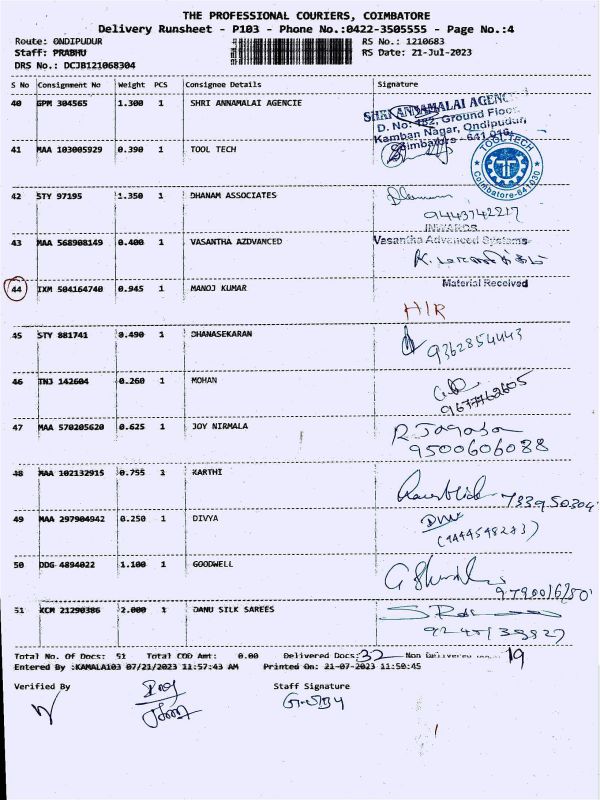 THE PROFESSIONAL COURIERS, COIMBATORE
Delivery Runsheet - P103 - Phone No.:0422-3505555 - Page No.:4
Route: ONDIPUDUR RS No.: 1210683
Staff: PRABHU RS Date: 21-Jul-2023
DRS No.: DCJB121068304
S No Consignment No Weight PCS Consignee Details Signature
40 GPM 304565 1.300 1 SHRI ANNAMALAI AGENCIE
SHRI ANNAMALAI AGENC
D. No: 182, Ground Floor,
Kamban Nagar, Ondipudur,
Coimbatore - 641 016.
41 MAA 103005929 0.390 1 TOOL TECH
TOOL TECH
Coimbatore-641030
TT
42 STY 97195 1.350 1 DHANAM ASSOCIATES
9443742217
INWARDS
43 MAA 568908149 0.400 1 VASANTHA AZDVANCED Vasantha Advanced Systems
44 IXM 504164740 0.945 1 MANOJ KUMAR Material Received
H/R
45 STY 881741 0.490 1 DHANASEKARAN
9362854443
46 TNJ 142604 0.260 1 MOHAN
9677762605
47 MAA 570205620 0.625 1 JOY NIRMALA
9500606088
48 MAA 102132915 0.755 1 KARTHI
733950304
49 MAA 297904942 0.250 1 DIVYA
50 DDG 4894022 1.100 1 GOODWELL
51 KCM 21290386 2.000 1 DANU SILK SAREES
Total No. Of Docs: 51 Total COD Amt: 0.00 Delivered Docs: 32 Non Delivered 19
Entered By :KAMALA103 07/21/2023 11:57:43 AM Printed On: 21-07-2023 11:50:45
Verified By Staff Signature